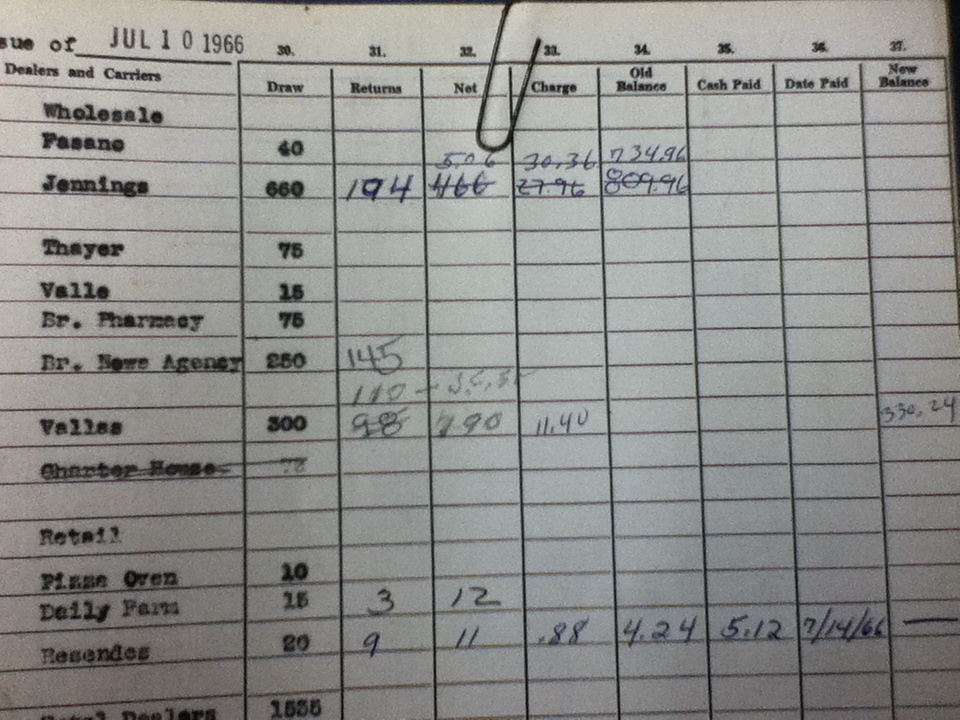 sue of JUL 10 1966
30. 31. 32. 33. 34. 35. 36. 37.
Dealers and Carriers Draw Returns Net Charge Old Balance Cash Paid Date Paid New Balance
Wholesale
Fasano 40
506 30.36 734.96
Jennings 660 194 466 27.96 809.96
Thayer 75
Valle 15
Br. Pharmacy 75
Br. News Agency 250 145
110
Valles 300 98 190 11.40 330.24
Charter House 75
Retail
Pizza Oven 10
Daily Farm 15 3 12
Resendes 20 9 11 .88 4.24 5.12 7/14/66 —
Total Dealers 1535